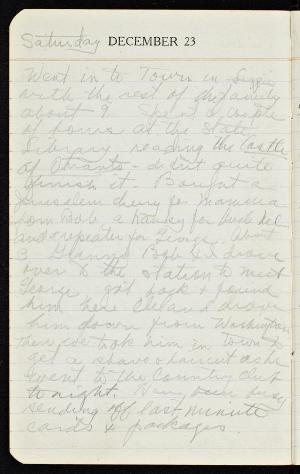 Saturday DECEMBER 23
Went in to Town in Lizzie
with the rest of the family
about 9. Spent a couple
of hours at the State
Library reading the Castle
of Otranto - didn't quite
finish it. Bought a
Jerusalem cherry for Mamma
from Bob a hanky for
and a repeater for George. About
3 Bob & I drove
over to the station to meet
George got back & found
him here Cle and drove
him down from Washington
Then we took him in town to
get a shave & haircut as he
went to the Country Club
to night. busy
sending off last minute
cards & packages